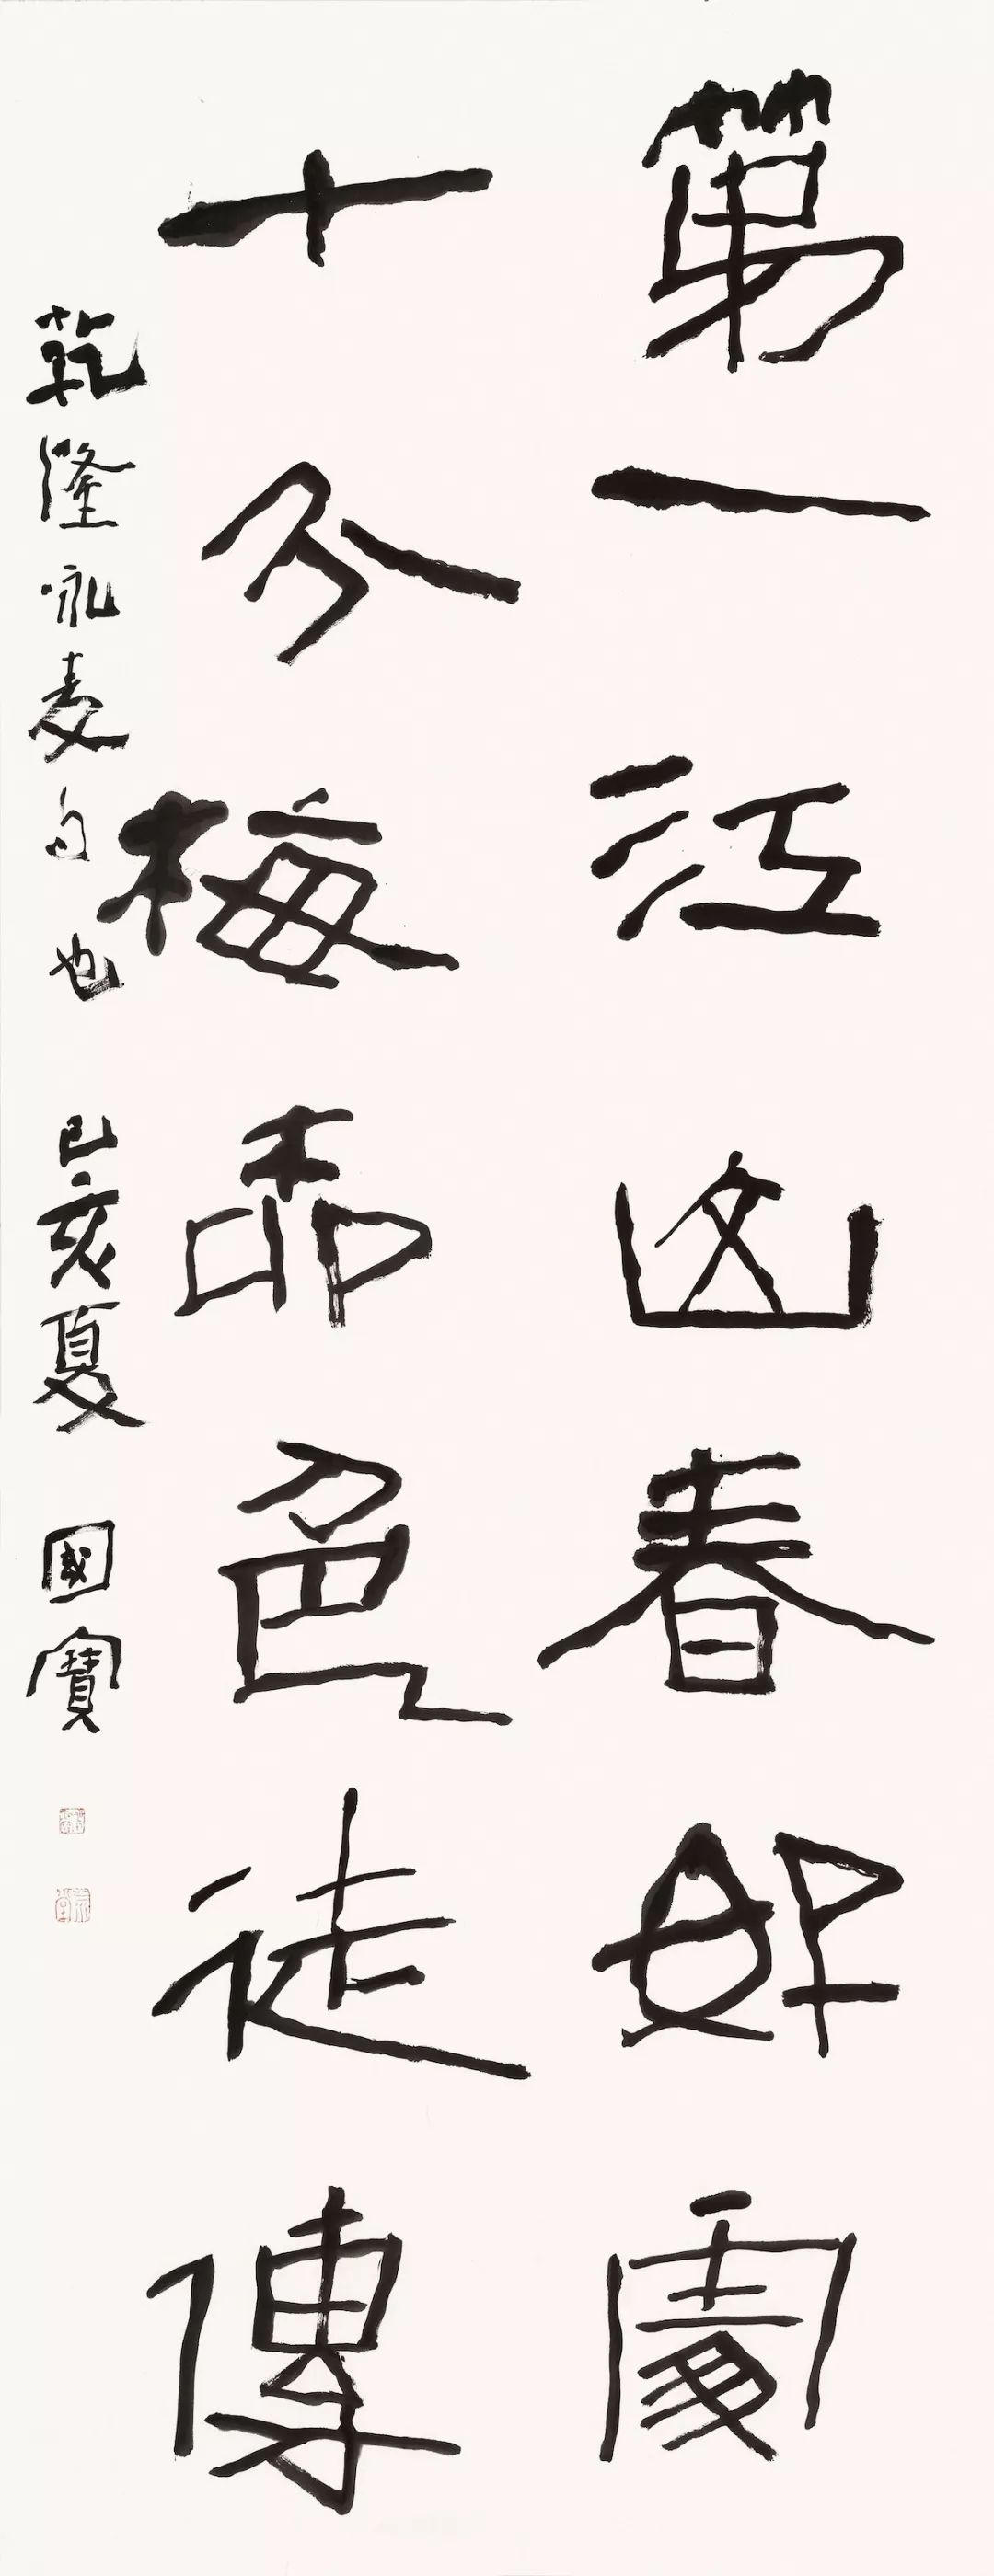 第一江山春好處
十分梅桺色徒傳
乾隆咏麦句也 己亥夏 國寶